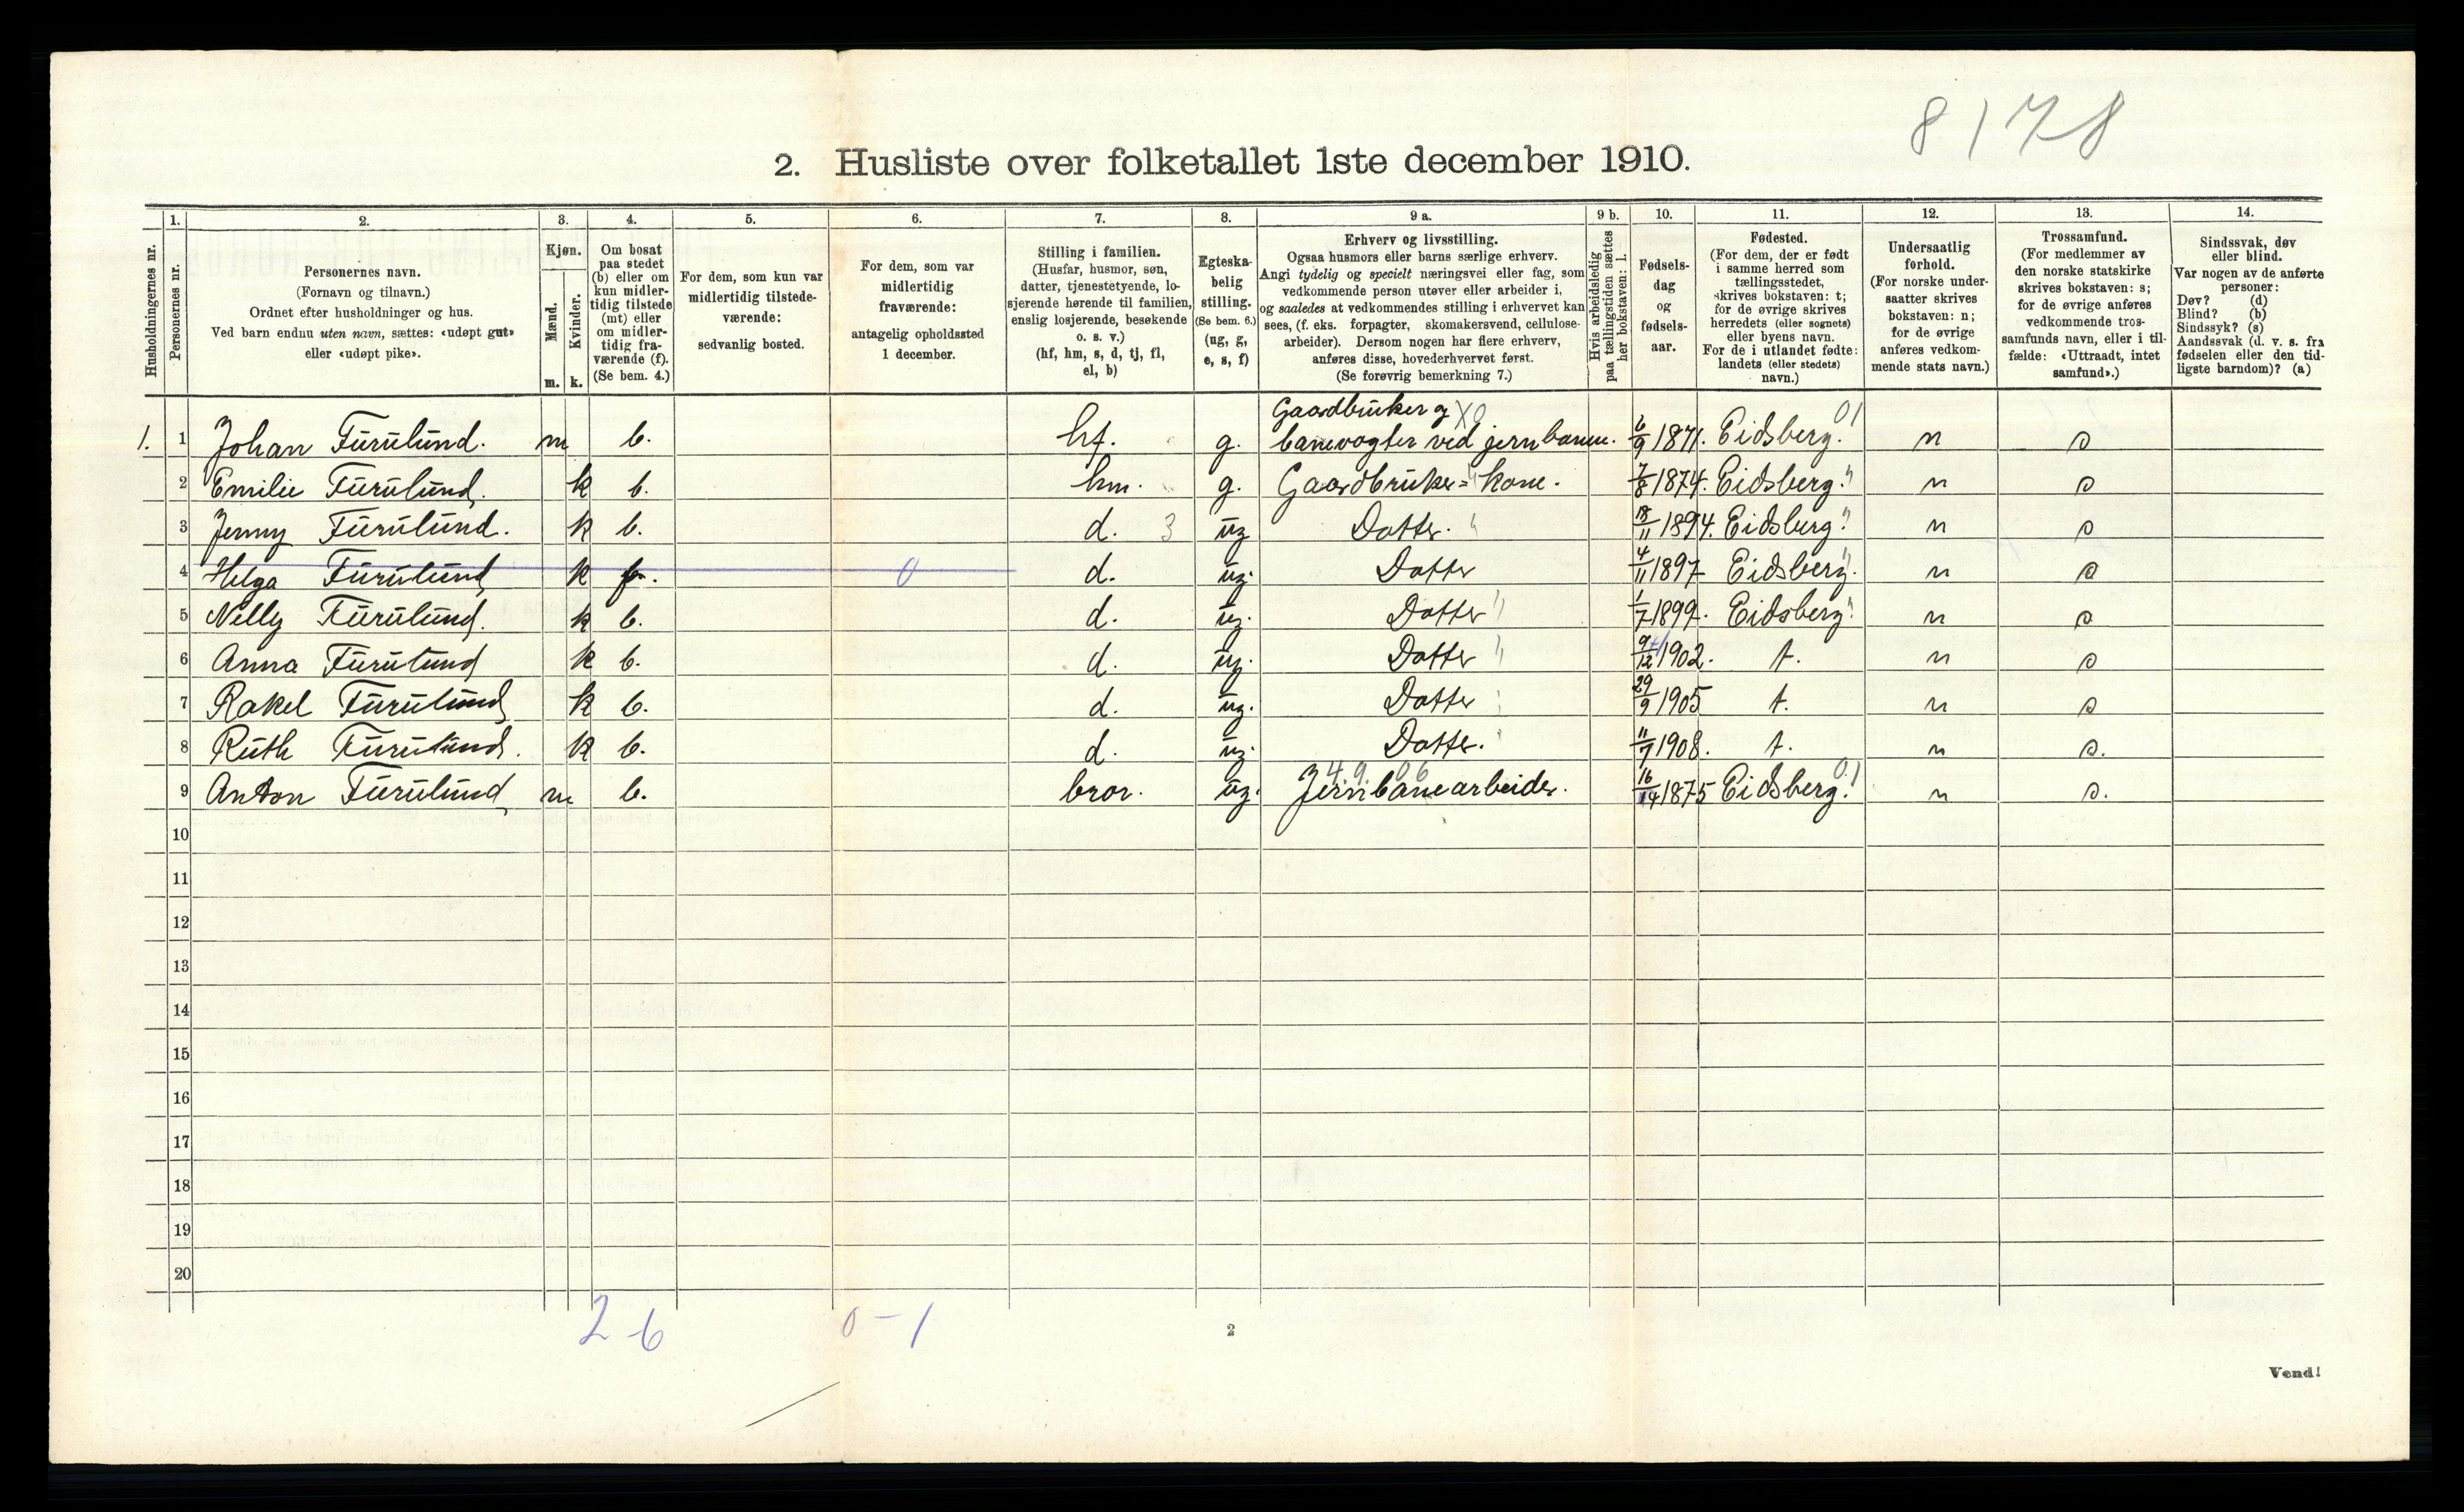 8178
2. Husliste over folketallet 1ste december 1910.
Husholdningernes nr.
1.
Personernes nr.
2.
Personernes navn.
(Fornavn og tilnavn.)
Ordnet efter husholdninger og hus.
Ved barn endnu uten navn, sættes: «udøpt gut»
eller «udøpt pike».
3.
Kjøn.
Mænd.
m.
Kvinder.
k.
4.
Om bosat
paa stedet
(b) eller om
kun midler-
tidig tilstede
(mt) eller
om midler-
tidig fra-
værende (f).
(Se bem. 4.)
5.
For dem, som kun var
midlertidig tilstede-
værende:
sedvanlig bosted.
6.
For dem, som var
midlertidig
fraværende:
antagelig opholdssted
1 december.
7.
Stilling i familien.
(Husfar, husmor, søn,
datter, tjenestetyende, lo-
sjerende hørende til familien,
enslig losjerende, besøkende
o. s. v.)
(hf, hm, s, d, tj, fl,
el, b)
8.
Egteska-
belig
stilling.
(Se bem. 6.)
(ug, g,
e, s, f)
9 a.
Erhverv og livsstilling.
Ogsaa husmors eller barns særlige erhverv.
Angi tydelig og specielt næringsvei eller fag, som
vedkommende person utøver eller arbeider i,
og saaledes at vedkommendes stilling i erhvervet kan
sees, (f. eks. forpagter, skomakersvend, cellulose-
arbeider). Dersom nogen har flere erhverv,
anføres disse, hovederhvervet først.
(Se forøvrig bemerkning 7.)
9 b.
Hvis arbeidsledig
paa tællingstiden sættes
her bokstaven: l.
10.
Fødsels-
dag
og
fødsels-
aar.
11.
Fødested.
(For dem, der er født
i samme herred som
tællingsstedet,
skrives bokstaven: t;
for de øvrige skrives
herredets (eller sognets)
eller byens navn.
For de i utlandet fødte:
landets (eller stedets)
navn.)
12.
Undersaatlig
forhold.
(For norske under-
saatter skrives
bokstaven: n;
for de øvrige
anføres vedkom-
mende stats navn.)
13.
Trossamfund.
(For medlemmer av
den norske statskirke
skrives bokstaven: s;
for de øvrige anføres
vedkommende tros-
samfunds navn, eller i til-
fælde: «Uttraadt, intet
samfund».)
14.
Sindssvak, døv
eller blind.
Var nogen av de anførte
personer:
Døv? (d)
Blind? (b)
Sindssyk? (s)
Aandssvak (d. v. s. fra
fødselen eller den tid-
ligste barndom)? (a)
Gaardbruker og X0 01
1. 1 Johan Furulund. m b. hf. g. banevogter ved jernbanen. 6/9 1871. Eidsberg. n s
2 Emilie Furulund. k b. hm. g. Gaardbruker=kone. 7/8 1874. Eidsberg. " n s
3 Jenny Furulund. k b. d. 3 ug Datter. " 18/11 1894. Eidsberg. " n s
4 Helga Furulund k f. 0 d. ug. Datter 4/11 1897 Eidsberg. " n s
5 Nelly Furulund. k b. d. ug. Datter " 1/7 1899. Eidsberg. " n s
6 Anna Furulund k b. d. ug. Datter " 9/12 1902. t. n s
7 Rakel Furulund k b. d. ug. Datter 29/9 1905 t. n s
8 Ruth Furulund. k b. d. ug. Datter. 11/7 1908. t. n s.
4.9.06 01
9 Anton Furulund m b. bror. ug. Jernbanearbeider. 1875 Eidsberg. n s.
10
11
12
13
14
15
16
17
18
19
20
2-6 0-1
2
Vend!